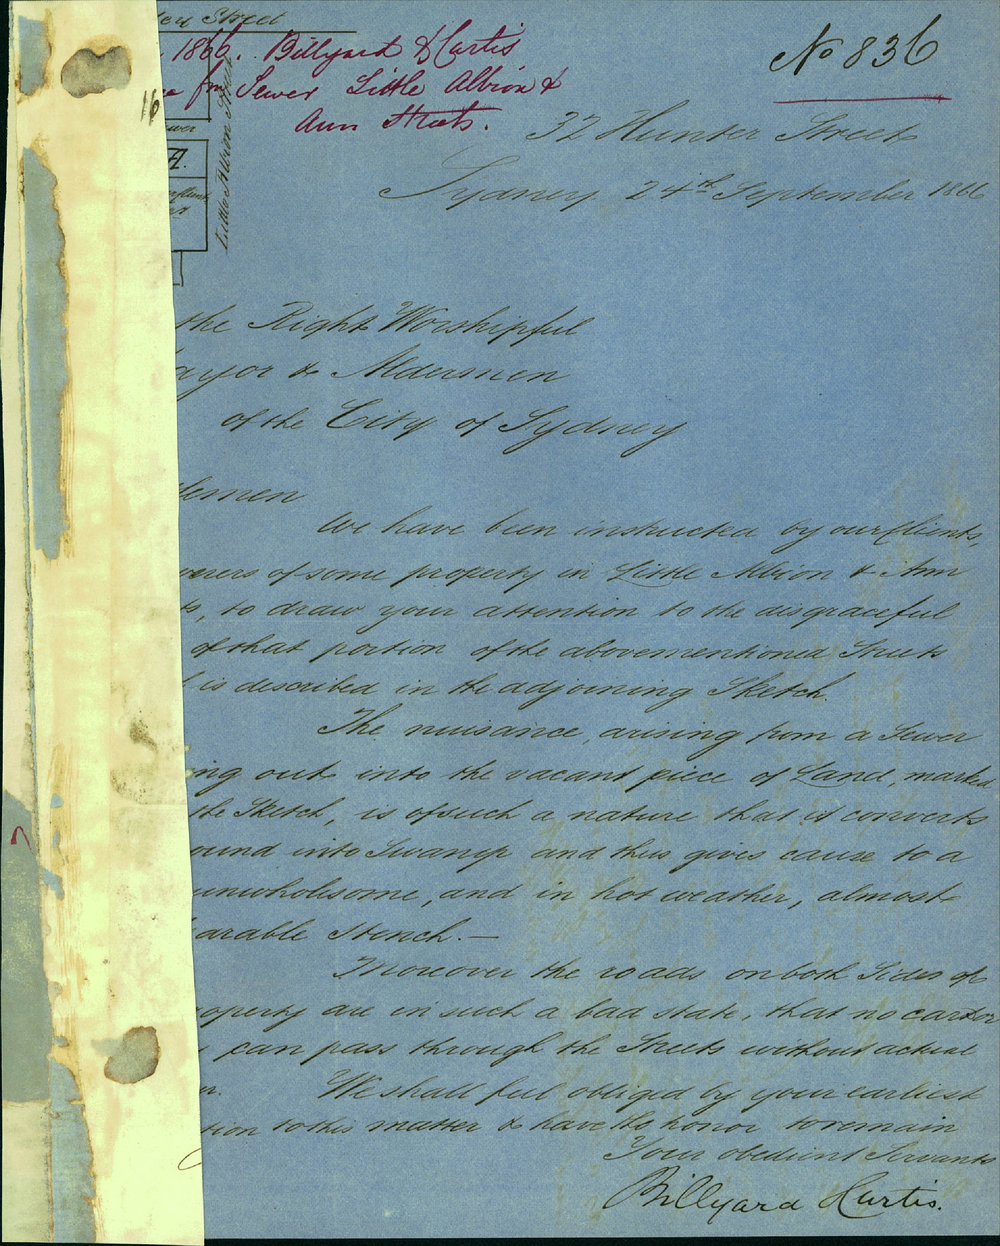 Street
1866. Billyard & Curtis
for Sewer Little Albion &
Ann Streets.
No 836
16
A.
Little Albion Street
32 Hunter Street
Sydney 24th September 1866
the Right Worshipful
ayor & Aldermen
of the City of Sydney
lemen
We have been instructed by our Clients,
wners of some property in Little Albion & Ann
s, to draw your attention to the disgraceful
of that portion of the abovementioned Streets
is described in the adjoining Sketch.
The nuisance, arising from a Sewer
ng out into the vacant piece of Land, marked
the Sketch, is of such a nature that it converts
ound into Swamp and thus gives cause to a
unwholesome, and in hot weather, almost
arable Stench.—
Moreover the roads on both Sides of
operty are in such a bad state, that no cart or
can pass through the Streets without actual
r. We shall feel obliged by your earliest
tion to this matter & have the honor to remain
Your obedient Servants
Billyard & Curtis.